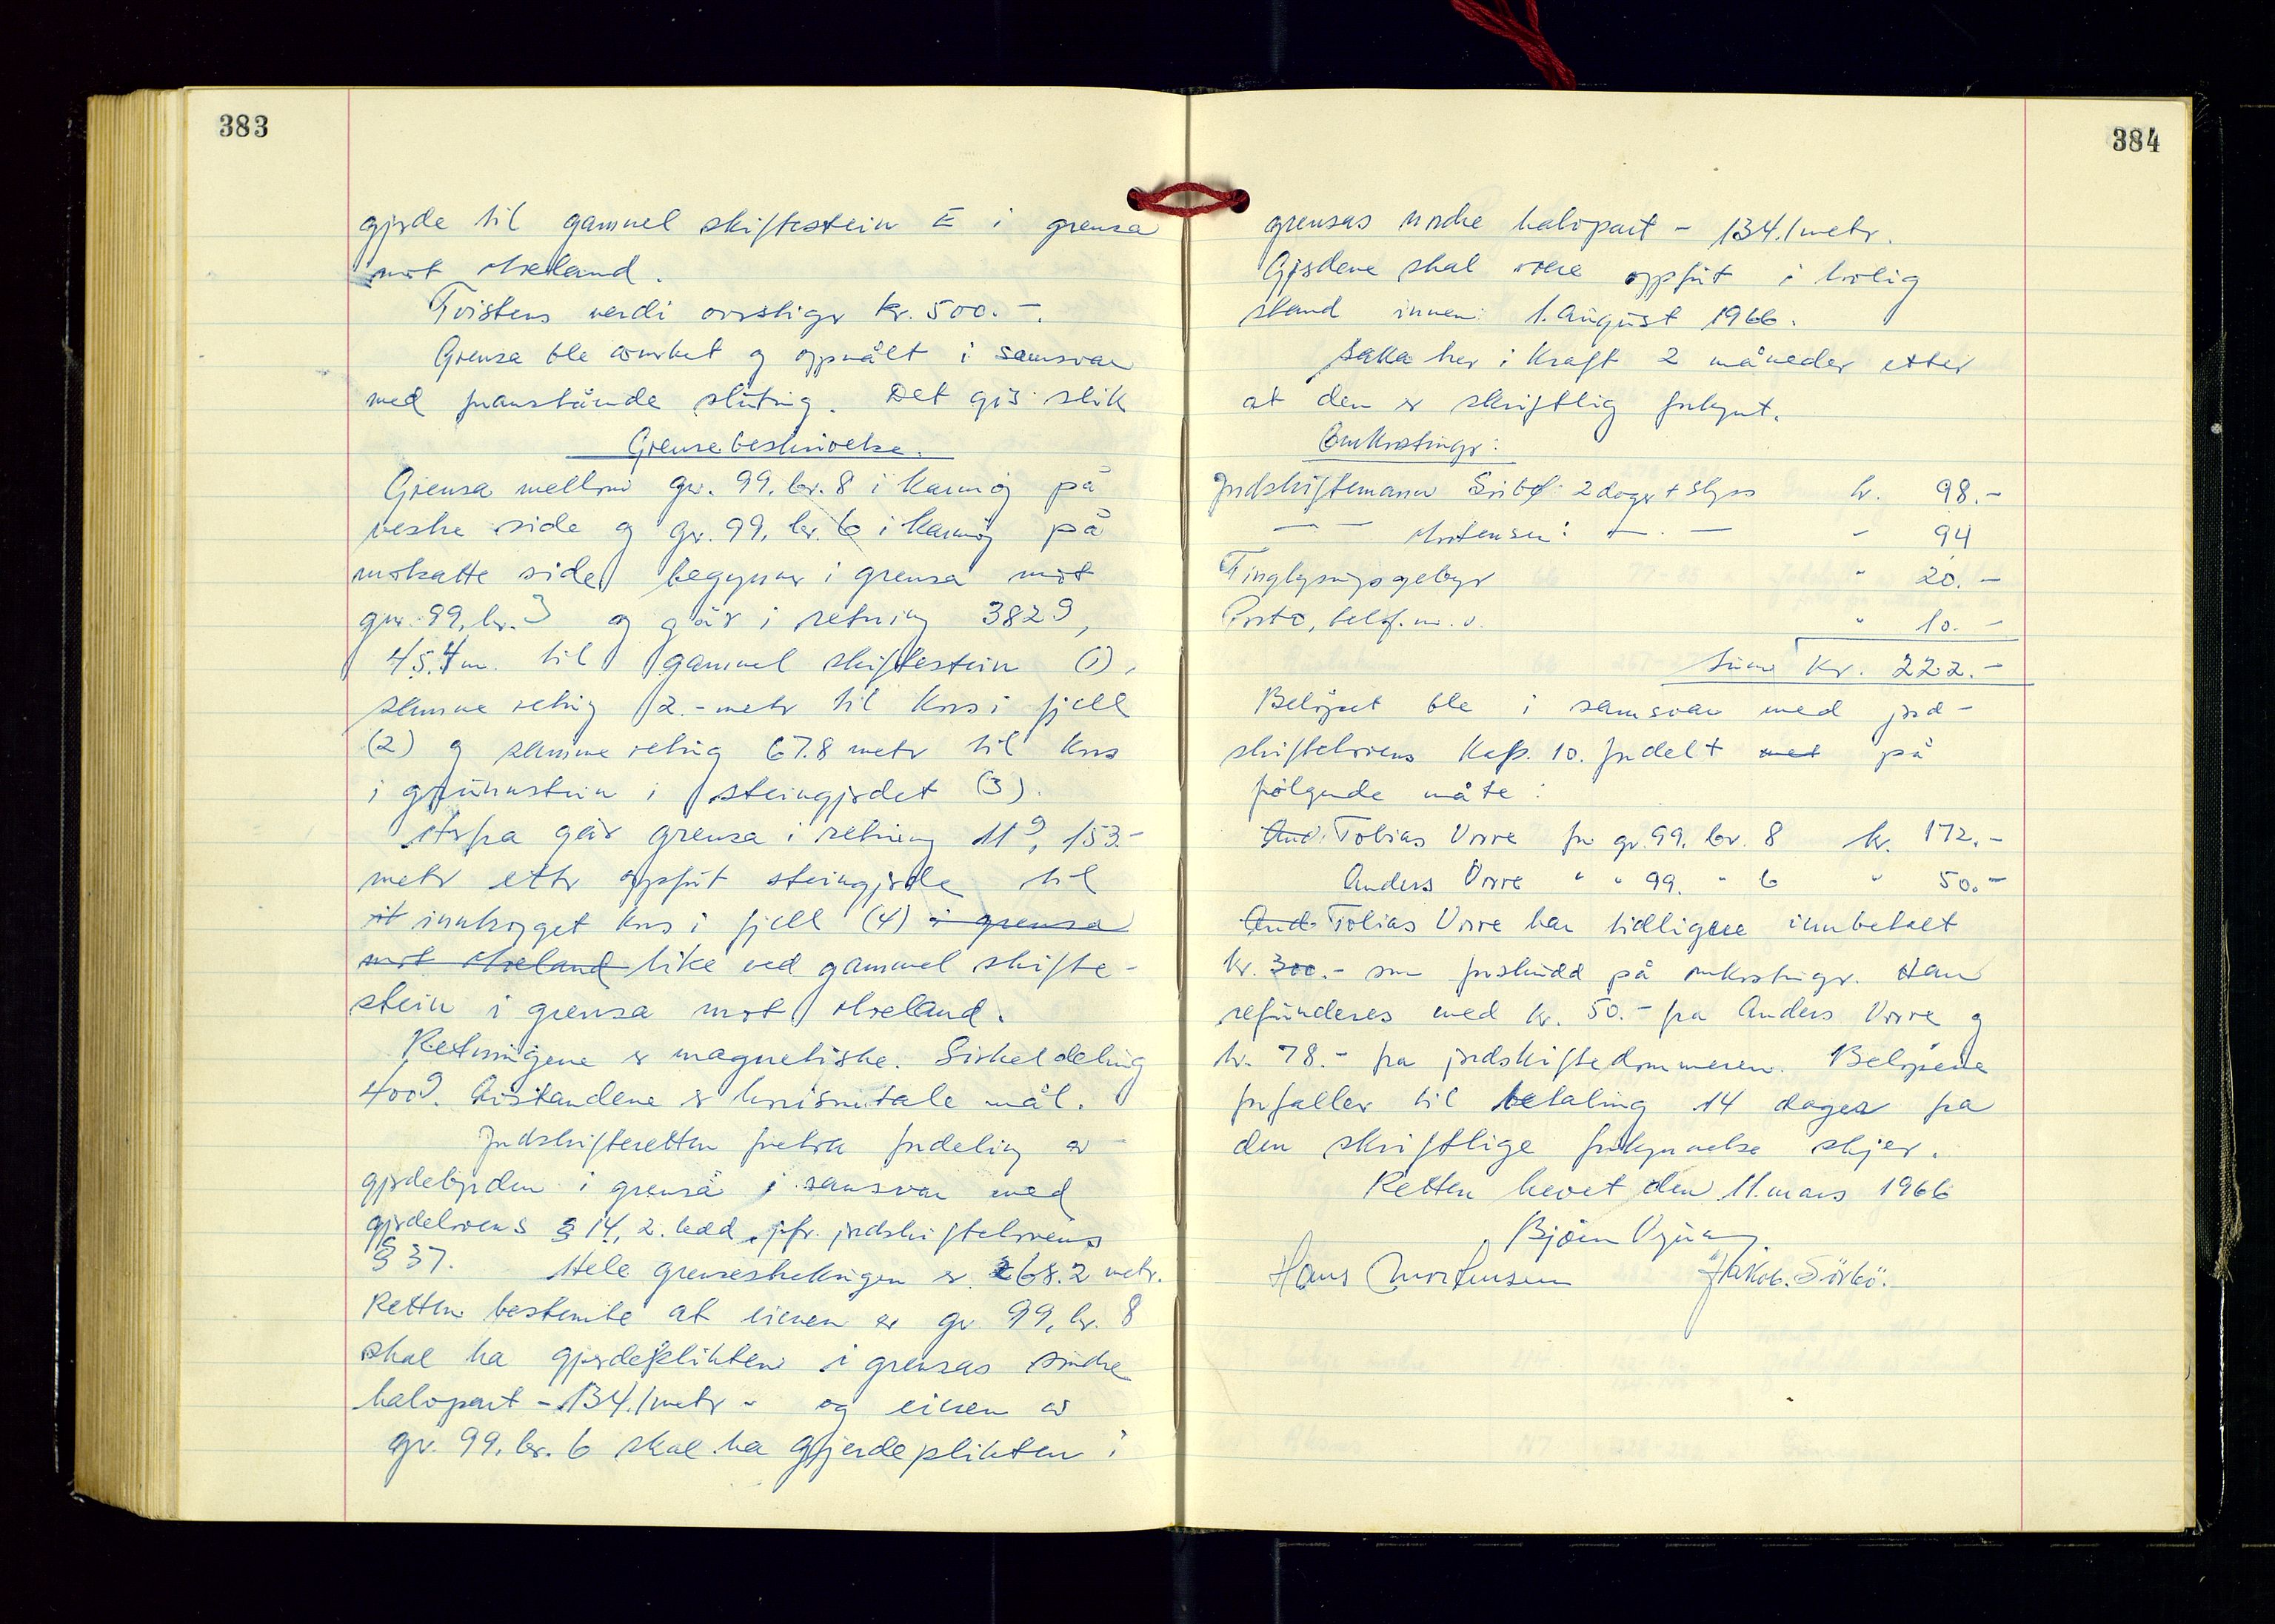 383
gjerde til gammel skiftestein I i grensa
mot Moeland.
Tvistens verdi overstiger kr. 500.-.
Grensa ble avmerket og oppmålt i samsvar
med framstående slutning. Det gis slik
Grensebeskrivelse.
Grensa mellom gnr. 99, bnr. 8 i Karmøy på
vestre side og gnr. 99, bnr. 6 i Karmøy på
motsatte side begynner i grensa mot
gnr. 99, bnr. 3 og går i retning 382g,
45.4 m. til gammel skiftestein (1),
samme retning 2.- meter til kors i fjell
(2) og samme retning 67.8 meter til kors
i grunnstein i steingjerdet (3).
Herfra går grensa i retning 11g, 153.-
meter etter oppført steingjerde til
et innhogget kors i fjell (4) i grensa
mot Moeland like ved gammel skifte-
stein i grensa mot Moeland.
Retningene er magnetiske. Sirkeldeling
400g. Avstandene er horisontale mål.
Jordskifteretten foretok fordeling av
gjerdebyrden i grensa i samsvar med
gjerdelovens § 14, 2. ledd, jfr. jordskiftelovens
§ 37. Hele grensestrekningen er 268.2 meter.
Retten bestemte at eieren av gnr 99, bnr. 8
skal ha gjerdeplikten i grensas søndre
halvpart - 134.1 meter - og eieren av
gnr. 99, bnr. 6 skal ha gjerdeplikten i
384
grensas nordre halvpart - 134.1 meter.
Gjerdene skal være oppført i lovlig
stand innen 1. august 1966.
Saka trer i kraft 2 måneder etter
at den er skriftlig forkynt.
Omkostninger:
Jordskiftemann Sörbö: 2 dager + skyss kr. 98.-
— — Mortensen: — . — - 94
Tinglysningsgebyr " 20.-
Porto, telef. m. v. " 10.-
Sum kr. 222.-
Beløpet ble i samsvar med jord-
skiftelovens kap. 10. fordelt met på
følgende måte:
And. Tobias Vorre for gnr. 99, bnr. 8 kr. 172.-
Anders Vorre " " 99. " 6 " 50.-
And. Tobias Vorre har tidligere innbetalt
kr. 300.- som forskudd på omkostninger. Han
refunderes med kr. 50.- fra Anders Vorre og
kr. 78.- fra jordskiftedommeren. Beløpene
forfaller til betaling 14 dager fra
den skriftlige forkynnelse skjer.
Retten hevet den 11. mars 1966
Bjørn
Hans Mortensen Jakob. Sörbö.